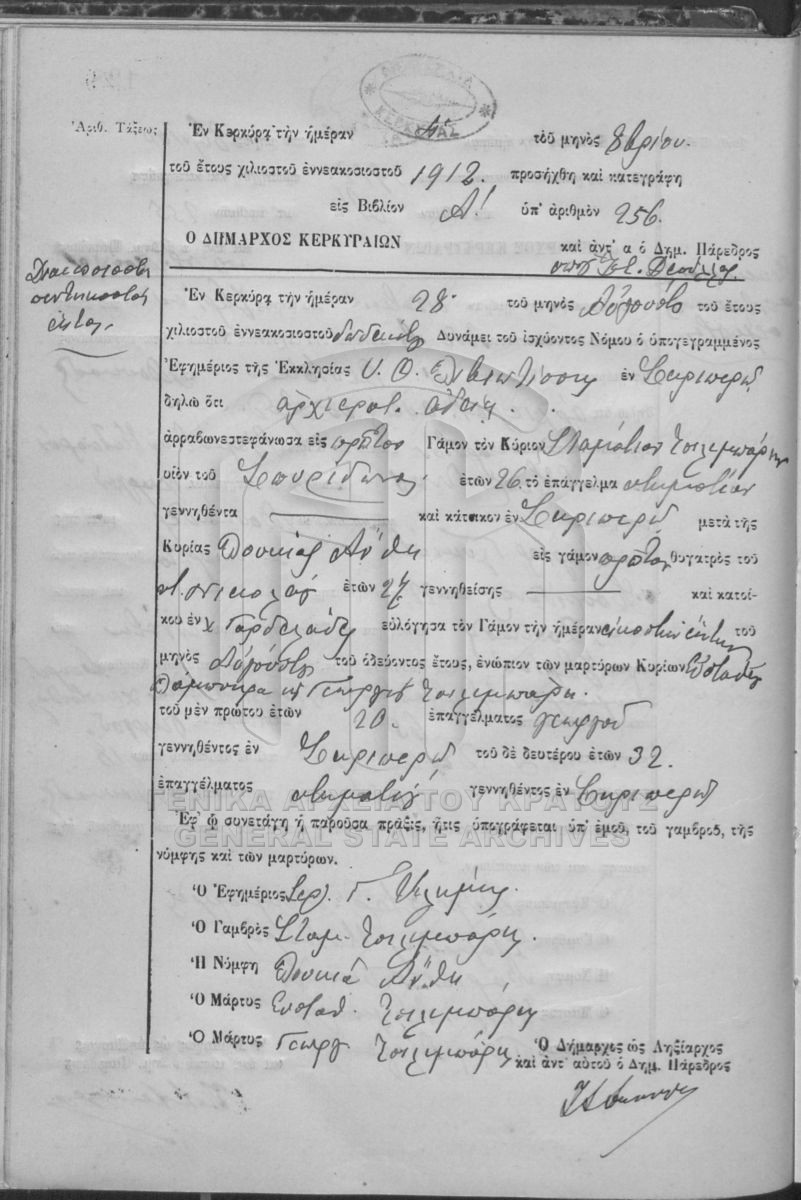 ΚΕΡΚΥΡΑΣ
Ἀριθ. Τάξεως
Ἐν Κερκύρᾳ τὴν ἡμέραν τοῦ μηνὸς 8βρίου.
τοῦ ἔτους χιλιοστοῦ ἐννεακοσιοστοῦ 1912. προσήχθη καὶ κατεγράφη
εἰς Βιβλίον Α! ὑπ' ἀριθμὸν 256.
Ο ΔΗΜΑΡΧΟΣ ΚΕΡΚΥΡΑΙΩΝ
καὶ ἀντ' α ὁ Δημ. Πάρεδρος
Διακοσιοστὴ
πεντηκοστὴ
ἕκτη
Ἐν Κερκύρᾳ τὴν ἡμέραν 28 τοῦ μηνὸς Αὐγούστου τοῦ ἔτους
χιλιοστοῦ ἐννεακοσιοστοῦ δωδεκάτου Δυνάμει τοῦ ἰσχύοντος Νόμου ὁ ὑπογεγραμμένος
Ἐφημέριος τῆς Ἐκκλησίας Υ. Θ. ἐν Σκριπερῷ
δηλῶ ὅτι ἀρχιερατ. ἀδείᾳ
ἀρραβωνεστεφάνωσα εἰς πρῶτον Γάμον τὸν Κύριον Σταμάτιον Τσιλιμπάρην
υἱὸν τοῦ Σπυρίδωνος ἐτῶν 26 τὸ ἐπάγγελμα κτηματίαν
γεννηθέντα καὶ κάτοικον ἐν Σκριπερῷ μετὰ τῆς
Κυρίας Λουκίας Ἄνθη εἰς γάμον πρῶτον θυγατρὸς τοῦ
Νικολάου ἐτῶν 27 γεννηθείσης καὶ κατοί-
κου ἐν Γαρδελάδες εὐλόγησα τὸν Γάμον τὴν ἡμέραν εἰκοστὴν ἕκτην τοῦ
μηνὸς Αὐγούστου τοῦ ὁδεύοντος ἔτους, ἐνώπιον τῶν μαρτύρων Κυρίων Εὐσταθίου
Γεωργίου Τσιλιμπάρη.
τοῦ μὲν πρώτου ἐτῶν 20. ἐπαγγέλματος γεωργοῦ
γεννηθέντος ἐν Σκριπερῷ τοῦ δὲ δευτέρου ἐτῶν 32.
ἐπαγγέλματος κτηματίου γεννηθέντος ἐν Σκριπερῷ
ΓΕΝΙΚΑ ΑΡΧΕΙΑ ΤΟΥ ΚΡΑΤΟΥΣ
Ἐφ' ᾧ συνετάγη ἡ παροῦσα πρᾶξις, ἥτις ὑπογράφεται ὑπ' ἐμοῦ, τοῦ γαμβροῦ, τῆς
GENERAL STATE ARCHIVES
νύμφης καὶ τῶν μαρτύρων.
Ὁ Ἐφημέριος Ἱερ. Γ.
Ὁ Γαμβρὸς Σταμ. Τσιλιμπάρης.
Ἡ Νύμφη Λουκία Ἄνθη
Ὁ Μάρτυς Εὐσταθ. Τσιλιμπάρης
Ὁ Μάρτυς Γεώργ. Τσιλιμπάρης
Ὁ Δήμαρχος ὡς Ληξίαρχος
καὶ ἀντ' αὐτοῦ ὁ Δημ. Πάρεδρος